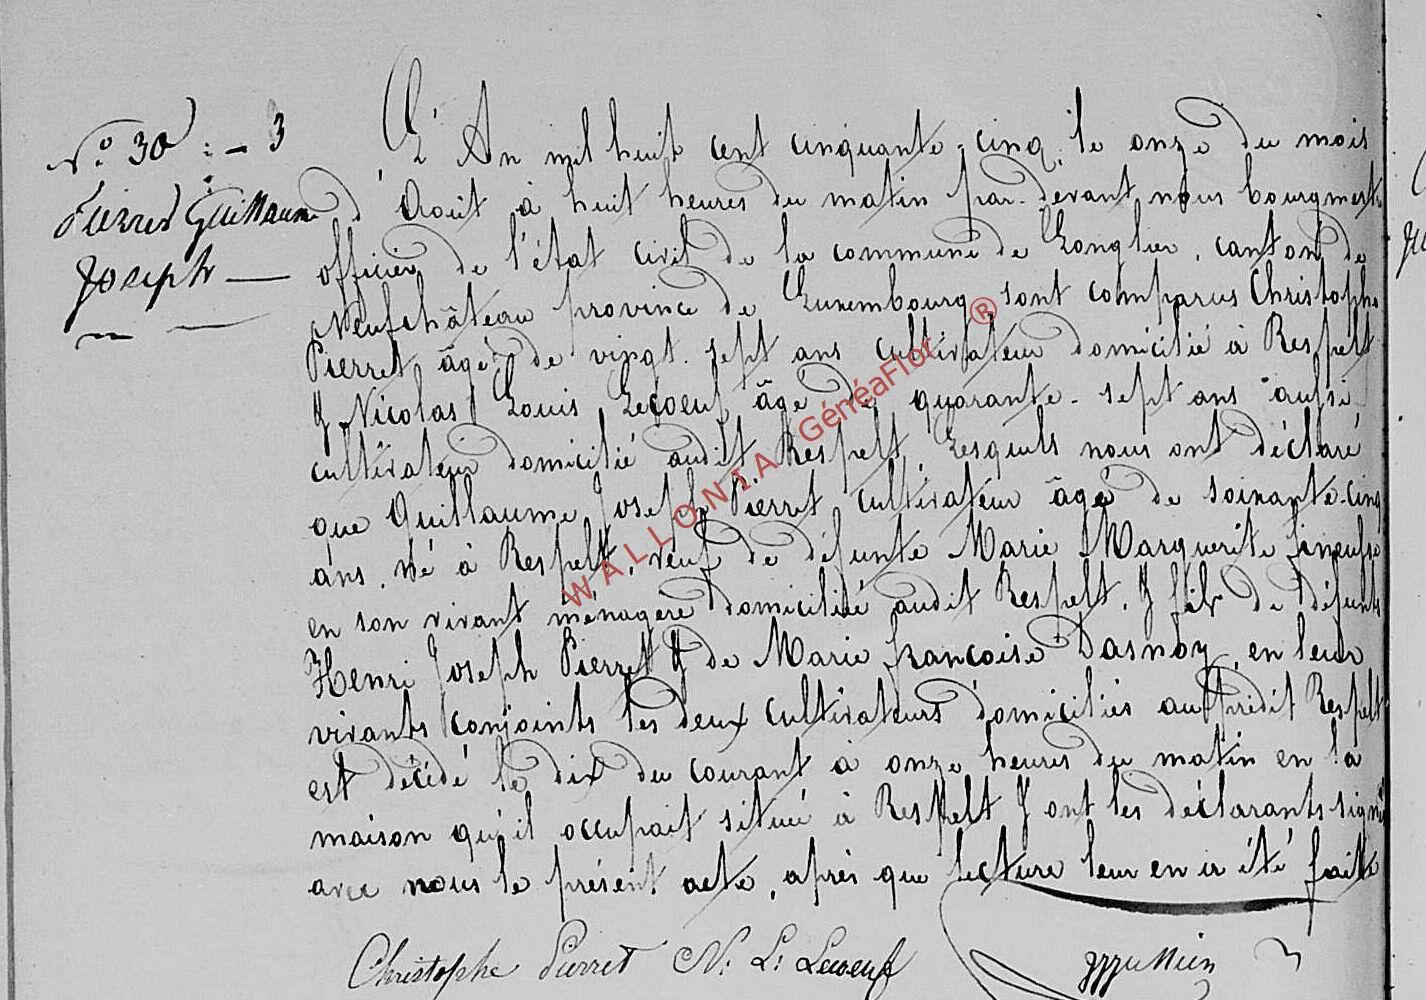 N° 30 : - 3
Pierret Guillaume
Joseph
L'An mil huit cent cinquante-cinq, le onze du mois
d'Aout à huit heures du matin par-devant nous bourgmestre
officier de l'état civil de la commune de Longlier, canton de
Neufchâteau province de Luxembourg sont comparus Christophe
Pierret âgé de vingt-sept ans cultivateur domicilié à Respelt
& Nicolas Louis Lecoeuf âgé de quarante-sept ans aussi
cultivateur domicilié audit Respelt, Lesquels nous ont déclaré
que Guillaume Joseph Pierret cultivateur âgé de soixante-cinq
ans, né à Respelt, veuf de défunte Marie Marguerite
en son vivant ménagère domiciliée audit Respelt, & fils de défunts
Henri Joseph Pierret & de Marie françoise Dasnoy, en leur
vivants conjoints les deux cultivateurs domiciliés au prédit Respelt
est décédé le dix du courant à onze heures du matin en la
maison qu'il occupait située à Respelt & ont les déclarants signé
avec nous le présent acte, après que lecture leur en a été faite
Christophe Pierret N. L. Lecoeuf
WALLONIA GénéaFlor ®